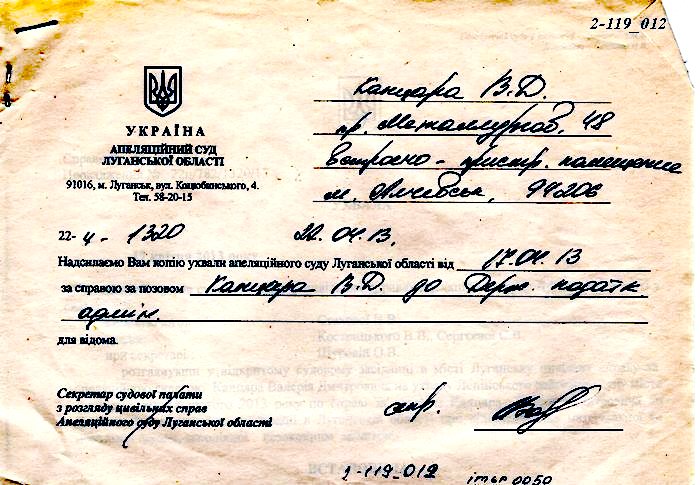 2-119_012
Канцара В.Д.
пр. Металлургов, 48
встроено-пристр. помещение
м. Алчевськ, 94206
УКРАЇНА
АПЕЛЯЦІЙНИЙ СУД
ЛУГАНСЬКОЇ ОБЛАСТІ
91016, м. Луганськ, вул. Коцюбинського, 4.
Тел. 58-20-15
22- ц - 1320 22.04.13.
Надсилаємо Вам копію ухвали апеляційного суду Луганської області від 17.04.13
за справою за позовом Канцара В.Д. до Держ. податк.
адмін.
для відома.
Секретар судової палати
з розгляду цивільних справ
Апеляційного суду Луганської області
2-119_012